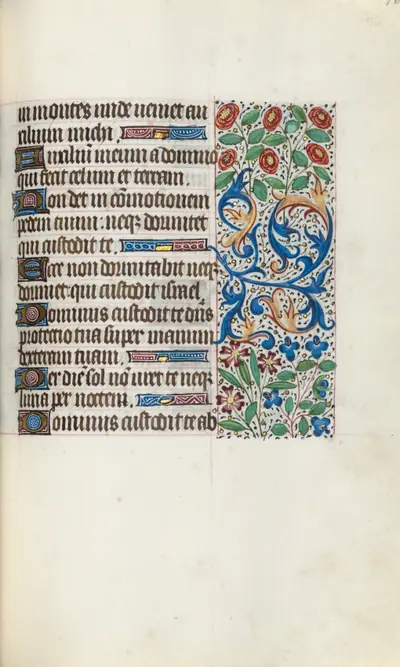 in montes unde veniet au
xilium michi.
Auxiliū meum a domino
qui fecit celum et terram.
Non det in cōmotionem
pedem tuum: neqz dormitet
qui custodit te.
Ecce non dormitabit neqz
dormiet: qui custodit israel.
Dominus custodit te dn̄s
protectio tua super manum
dexteram tuam.
Per diē sol nō uret te neqz
luna per noctem.
Dominus custodit te ab